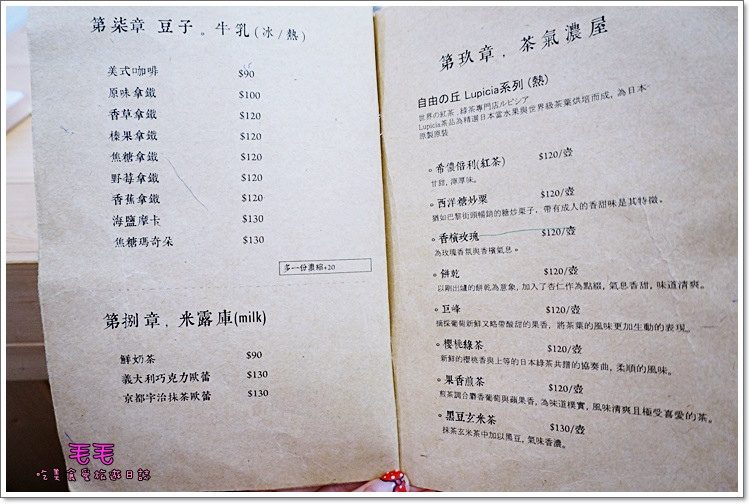 第柒章 豆子。牛乳(冰/熱)
美式咖啡 $90
原味拿鐵 $100
香草拿鐵 $120
榛果拿鐵 $120
焦糖拿鐵 $120
野莓拿鐵 $120
香蕉拿鐵 $120
海鹽摩卡 $130
焦糖瑪奇朵 $130
多一份濃縮+20
第捌章．米露庫(milk)
鮮奶茶 $90
義大利巧克力歐蕾 $130
京都宇治抹茶歐蕾 $130
第玖章．茶氣濃屋
自由の丘 Lupicia系列 (熱)
世界の紅茶．綠茶專門店ルピシア
Lupicia茶品為精選日本當水果與世界級茶葉烘培而成，為日本
原製原裝
。希儂倍利(紅茶) $120/壺
甘甜，渾厚味。
。西洋糖炒栗 $120/壺
猶如巴黎街頭暢銷的糖炒栗子，帶有成人的香甜味是其特徵。
。香檳玫瑰 $120/壺
為玫瑰香氛與香檳氣息。
。餅乾 $120/壺
以剛出爐的餅乾為意象，加入了杏仁作為點綴，氣息香甜，味道清爽。
。巨峰 $120/壺
摘採葡萄新鮮又略帶酸甜的果香，將茶葉的風味更加生動的表現。
。櫻桃綠茶 $120/壺
新鮮的櫻桃香與上等的日本綠茶共譜的協奏曲，柔順的風味。
。果香煎茶 $120/壺
煎茶調合麝香葡萄與蘋果香，為味道樸實，風味清爽且極受喜愛的茶。
。黑豆玄米茶 $130/壺
抹茶玄米茶中加以黑豆，氣味香濃。
毛毛
吃美食愛旅遊日誌